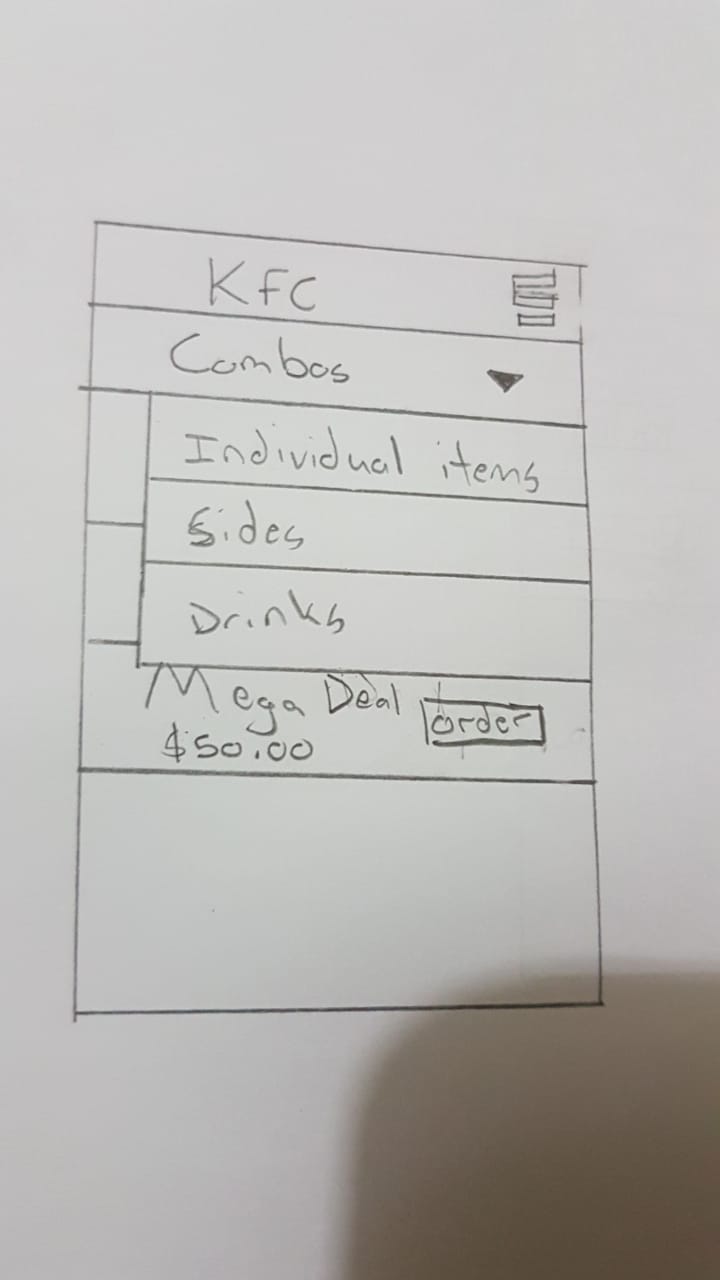 KFC
Combos
Individual items
Sides
Drinks
Mega Deal order
$50.00